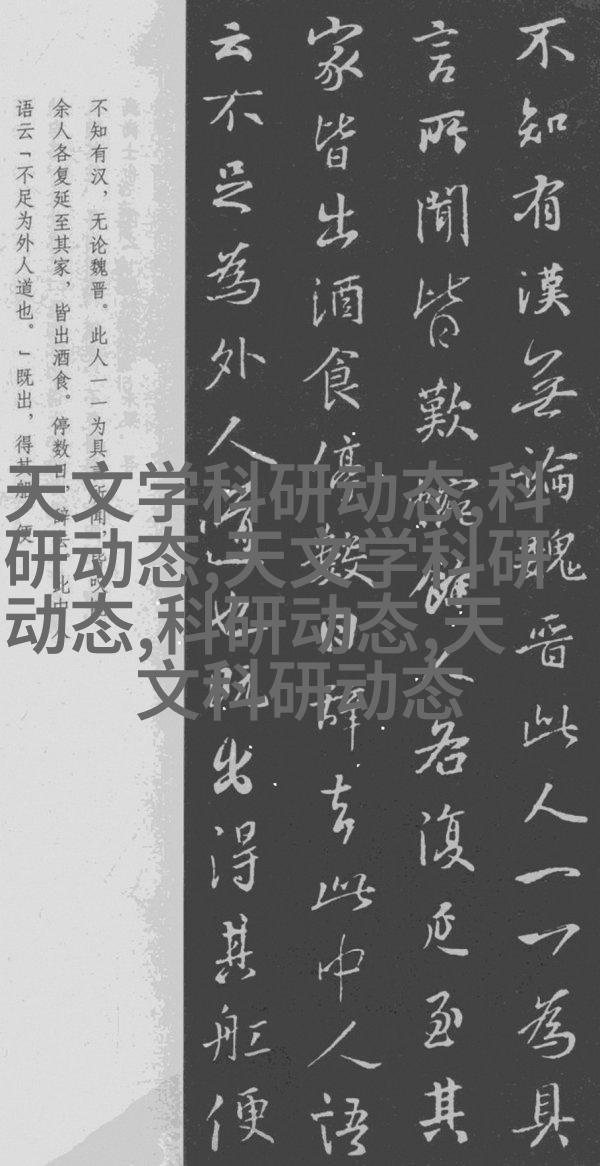 不知有漢無論魏晋此人一一為具
言所聞皆歎惋餘人各復延至其
家皆出酒食停數日辞去此中人語
云不足為外人道也既出得其舡便
不知有汉，无论魏晋。此人一一为具言所闻，皆叹
余人各复延至其家，皆出酒食。停数日，辞去。此中人
语云「不足为外人道也。」既出，得其船，便
天文学科研动态,科
研动态,天文学科研
动态,科研动态,天
文科研动态